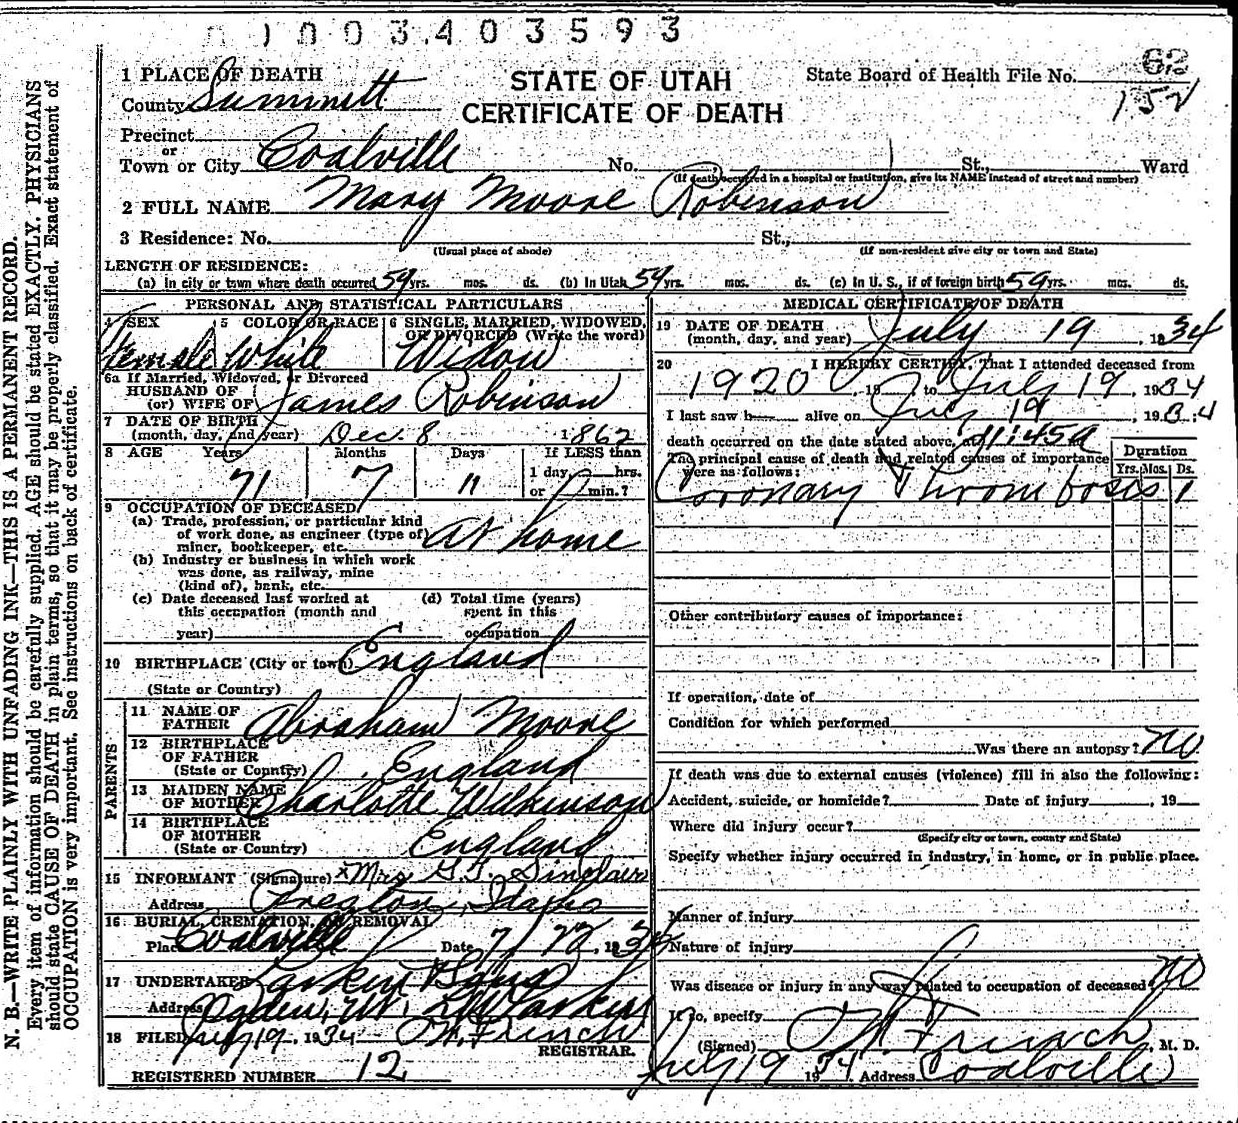 1003403593
62
1 PLACE OF DEATH
STATE OF UTAH
State Board of Health File No.
152
County Summitt
CERTIFICATE OF DEATH
Precinct
or
Town or City Coalville No. St., Ward
(If death occurred in a hospital or institution, give its NAME instead of street and number)
2 FULL NAME Mary Moore Robinson
3 Residence: No. St.,
(Usual place of abode) (If non-resident give city or town and State)
LENGTH OF RESIDENCE:
(a) In city or town where death occurred 59 yrs. mos. ds. (b) In Utah 59 yrs. mos. ds. (c) In U. S., if of foreign birth 59 yrs. mos. ds.
PERSONAL AND STATISTICAL PARTICULARS
4 SEX 5 COLOR OR RACE 6 SINGLE, MARRIED, WIDOWED,
OR DIVORCED (Write the word)
Female White Widow
6a If Married, Widowed, or Divorced
HUSBAND OF
(or) WIFE OF James Robinson
7 DATE OF BIRTH
(month, day, and year) Dec. 8 1862
8 AGE Years Months Days If LESS than
1 day, hrs.
71 7 11 or min.?
9 OCCUPATION OF DECEASED
(a) Trade, profession, or particular kind
of work done, as engineer (type of) At home
miner, bookkeeper, etc.
(b) Industry or business in which work
was done, as railway, mine
(kind of), bank, etc.
(c) Date deceased last worked at (d) Total time (years)
this occupation (month and spent in this
year) occupation
10 BIRTHPLACE (City or town) England
(State or Country)
PARENTS
11 NAME OF
FATHER Abraham Moore
12 BIRTHPLACE
OF FATHER
(State or Country) England
13 MAIDEN NAME
OF MOTHER Charlotte Wilkinson
14 BIRTHPLACE
OF MOTHER
(State or Country) England
15 INFORMANT (Signature) x Mrs G.T. Sinclair
Address Preston, Idaho
16 BURIAL, CREMATION, OR REMOVAL
Place Coalville Date 7/22, 1934
17 UNDERTAKER Larkin & Sons
Address Ogden, Ut.
18 FILED July 19, 1934
REGISTRAR.
REGISTERED NUMBER 12
MEDICAL CERTIFICATE OF DEATH
19 DATE OF DEATH
(month, day, and year) July 19, 1934
20 I HEREBY CERTIFY, That I attended deceased from
1920, 19 to July 19, 1934
I last saw h alive on July 19, 1934
death occurred on the date stated above, at 11:45 a
The principal cause of death and related causes of importance
were as follows:
Duration
Yrs. Mos. Ds.
Coronary Thrombosis 1
Other contributory causes of importance:
If operation, date of
Condition for which performed
Was there an autopsy? No
If death was due to external causes (violence) fill in also the following:
Accident, suicide, or homicide? Date of injury , 19
Where did injury occur?
(Specify city or town, county and State)
Specify whether injury occurred in industry, in home, or in public place.
Manner of injury
Nature of injury
Was disease or injury in any way related to occupation of deceased No
If so, specify
(Signed) , M. D.
July 19 1934 Address Coalville
N. B.—WRITE PLAINLY WITH UNFADING INK—THIS IS A PERMANENT RECORD.
Every item of information should be carefully supplied. AGE should be stated EXACTLY. PHYSICIANS
should state CAUSE OF DEATH in plain terms, so that it may be properly classified. Exact statement of
OCCUPATION is very important. See instructions on back of certificate.